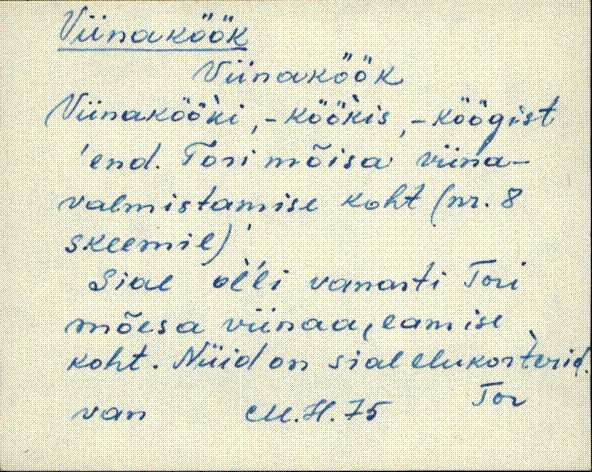 Viinaköök
Viinaköök
Viinakööki, -köökis, -köögist
'end. Tori mõisa viina-
valmistamise koht (nr. 8
skeemil)'
Sial olli vanasti Tori
mõesa viinaajamise
koht. Nüid on sial elukorterid.
van M.H. 75 Tor